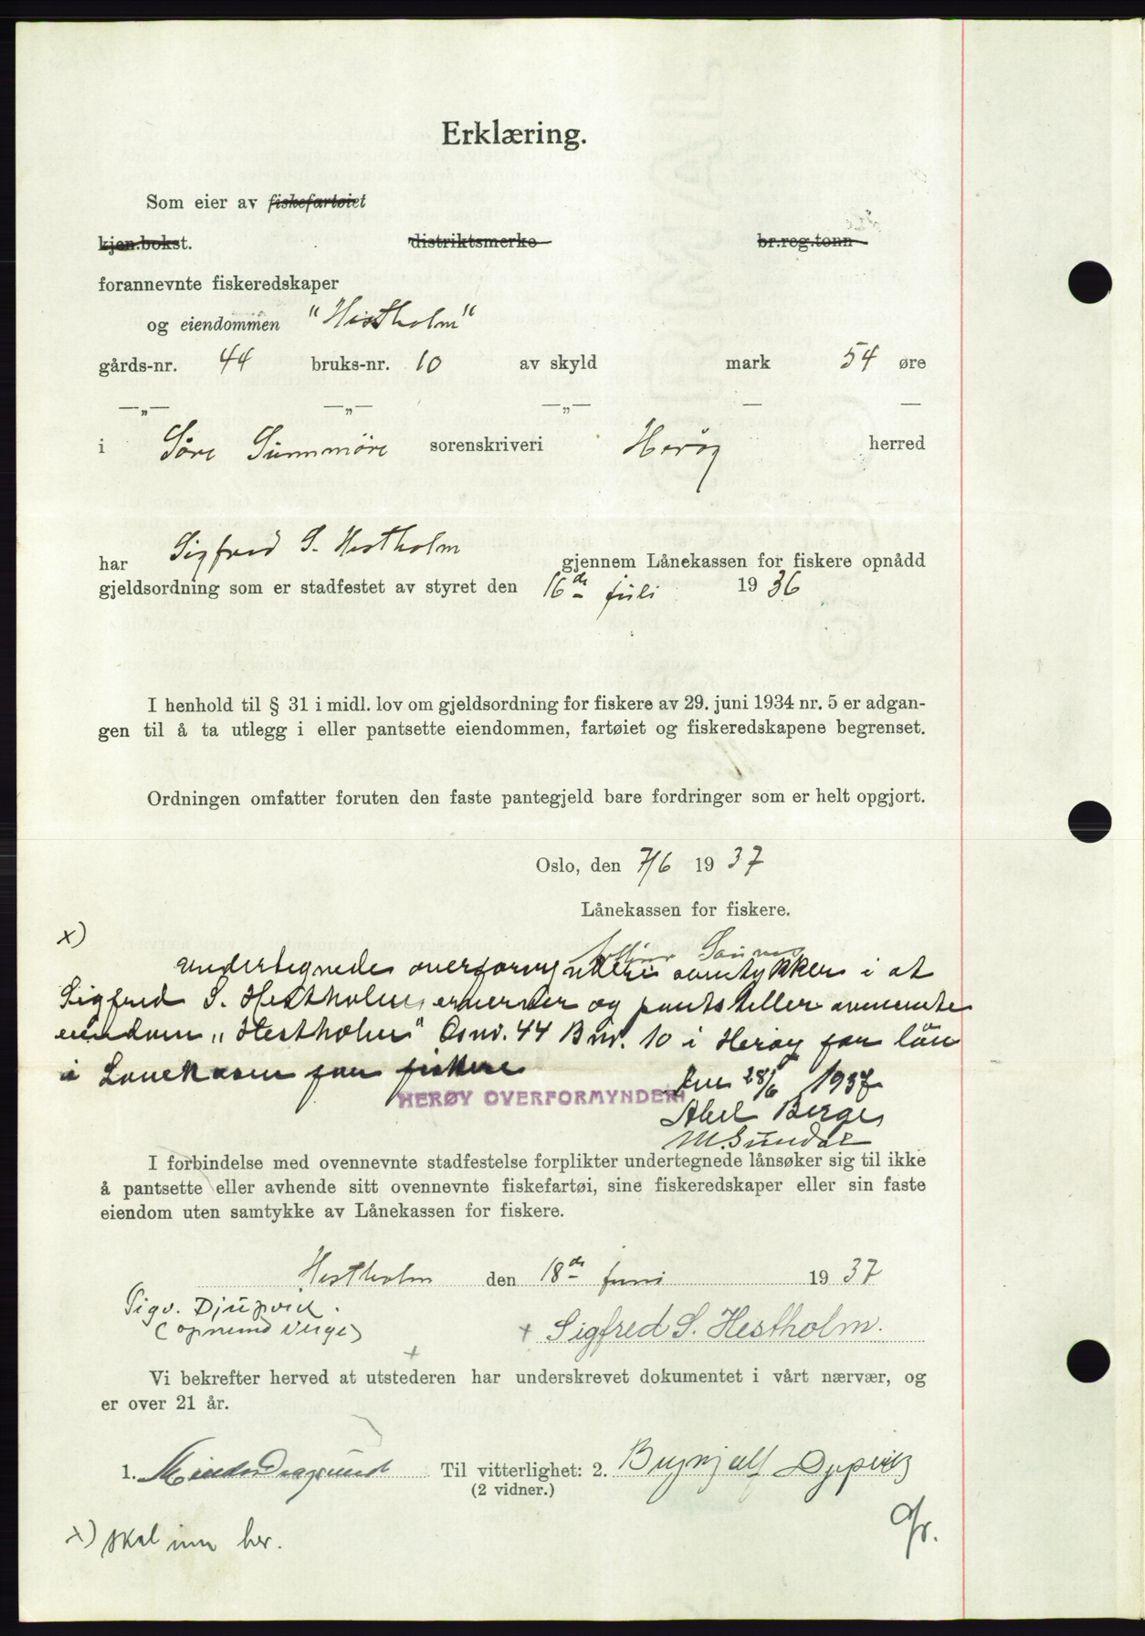 Erklæring.
Som eier av fiskefartøiet
kjen.bokst. distriktsmerke br.reg.tonn
forannevnte fiskeredskaper
og eiendommen "Hestholm"
gårds-nr. 44 bruks-nr. 10 av skyld mark 54 øre
—„— —„— —„— — —
i Søre Sunnmöre sorenskriveri Herøy herred
har Sigfred S. Hestholm gjennem Lånekassen for fiskere opnådd
gjeldsordning som er stadfestet av styret den 16de juli 1936
I henhold til § 31 i midl. lov om gjeldsordning for fiskere av 29. juni 1934 nr. 5 er adgan-
gen til å ta utlegg i eller pantsette eiendommen, fartøiet og fiskeredskapene begrenset.
Ordningen omfatter foruten den faste pantegjeld bare fordringer som er helt opgjort.
Oslo, den 7/6 1937
Lånekassen for fiskere.
x)
undertegnede overformynderi samtykker i at
Sigfred S. Hestholm erverver og pantsteller ovennevnte
eiendom „Hestholm" Gnr. 44 Bnr. 10 i Herøy for lån
i Lånekassen for fiskere
HERØY OVERFORMYNDERI
den 28/6 1937
Abel Berge
M. Sundal
I forbindelse med ovennevnte stadfestelse forplikter undertegnede lånsøker sig til ikke
å pantsette eller avhende sitt ovennevnte fiskefartøi, sine fiskeredskaper eller sin faste
eiendom uten samtykke av Lånekassen for fiskere.
Hestholm den 18de juni 1937
Sigv. Djupvik.
(opnemd verge)
+ Sigfred S. Hestholm.
+
Vi bekrefter herved at utstederen har underskrevet dokumentet i vårt nærvær, og
er over 21 år.
1. Til vitterlighet: 2. Brynjulf Dypvik
(2 vidner.)
x) skal inn her.